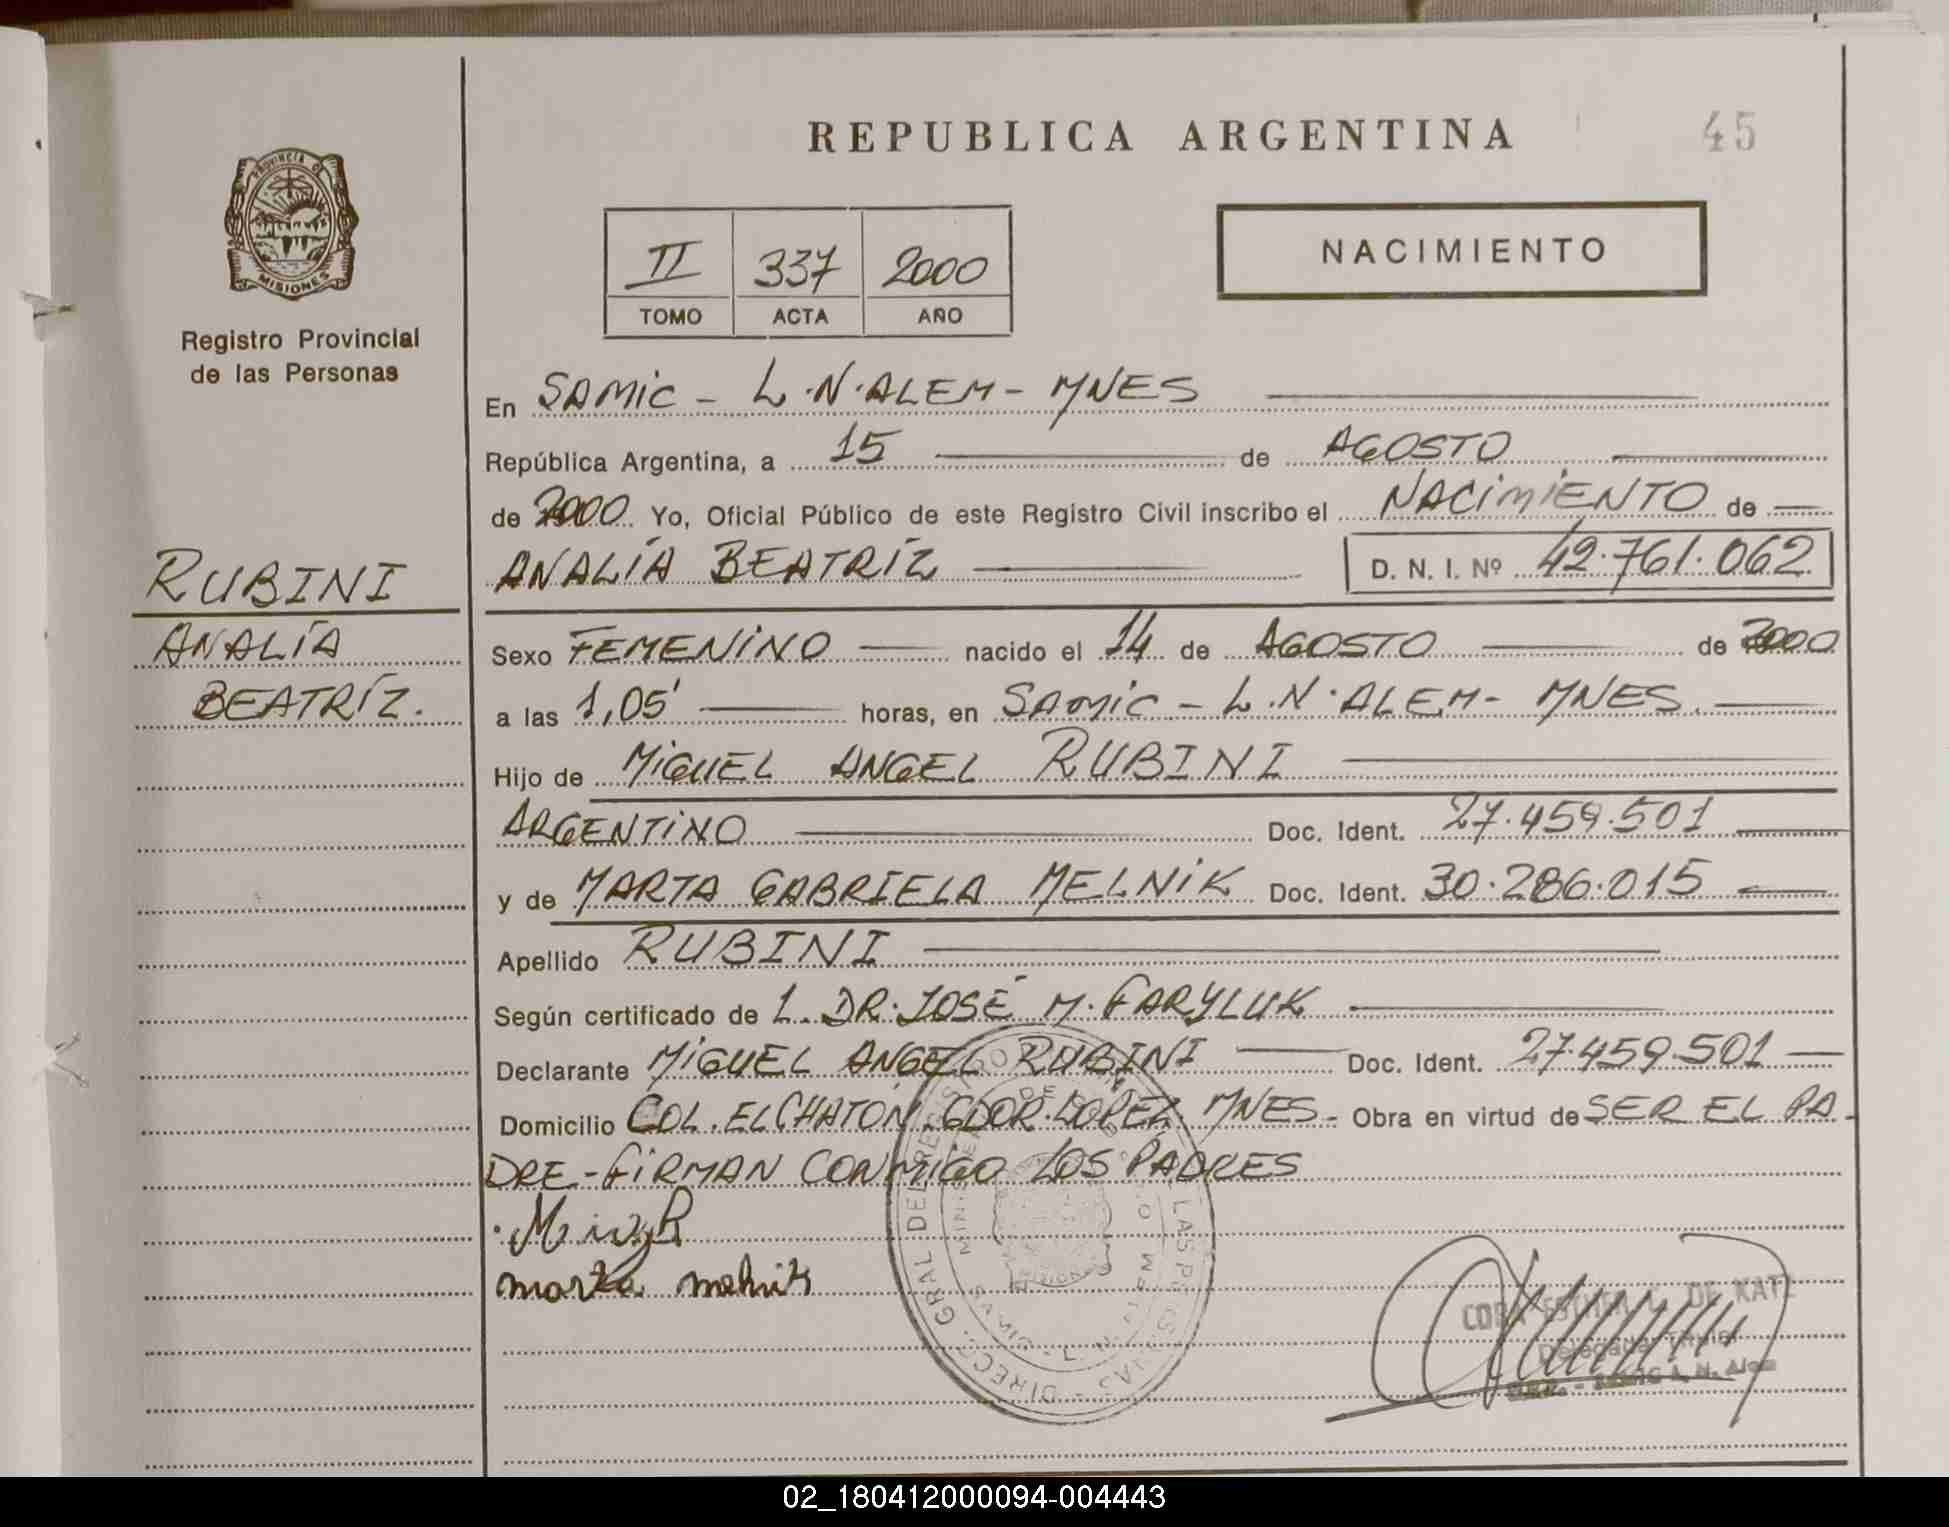 REPUBLICA ARGENTINA
45
PROVINCIA D
MISIONES
Registro Provincial
de las Personas
II 337 2000
TOMO ACTA AÑO
NACIMIENTO
En SAMIC - L.N.ALEM - MNES
República Argentina, a 15 de AGOSTO
de 2000. Yo, Oficial Público de este Registro Civil inscribo el NACIMIENTO de
ANALÍA BEATRÍZ D. N. I. Nº 42.761.062
RUBINI
ANALÍA
BEATRÍZ.
Sexo FEMENINO nacido el 14 de AGOSTO de 2000
a las 1,05' horas, en SAMIC - L.N.ALEM - MNES.
Hijo de MIGUEL ANGEL RUBINI
ARGENTINO Doc. Ident. 27.459.501
y de MARTA GABRIELA MELNIK Doc. Ident. 30.286.015
Apellido RUBINI
Según certificado de L. DR. JOSÉ M. FARYLUK
Declarante MIGUEL ANGEL RUBINI Doc. Ident. 27.459.501
Domicilio COL. EL CHATON. GDOR. LOPEZ. MNES - Obra en virtud de SER EL PA-
DRE - FIRMAN CONMIGO LOS PADRES
marta melnik
DIREC. GRAL DEL REGISTRO DE LAS PERSONAS
DE KATZ
Delegada Titular
L. N. Alem
02_180412000094-004443